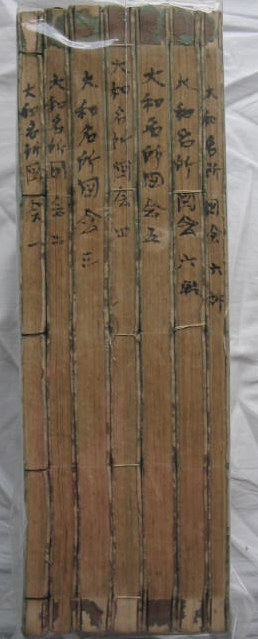 大和名所図会 一
大和名所図会 二
大和名所図会 三
大和名所図会 四
大和名所図会 五
大和名所図会 六前
大和名所図会 六